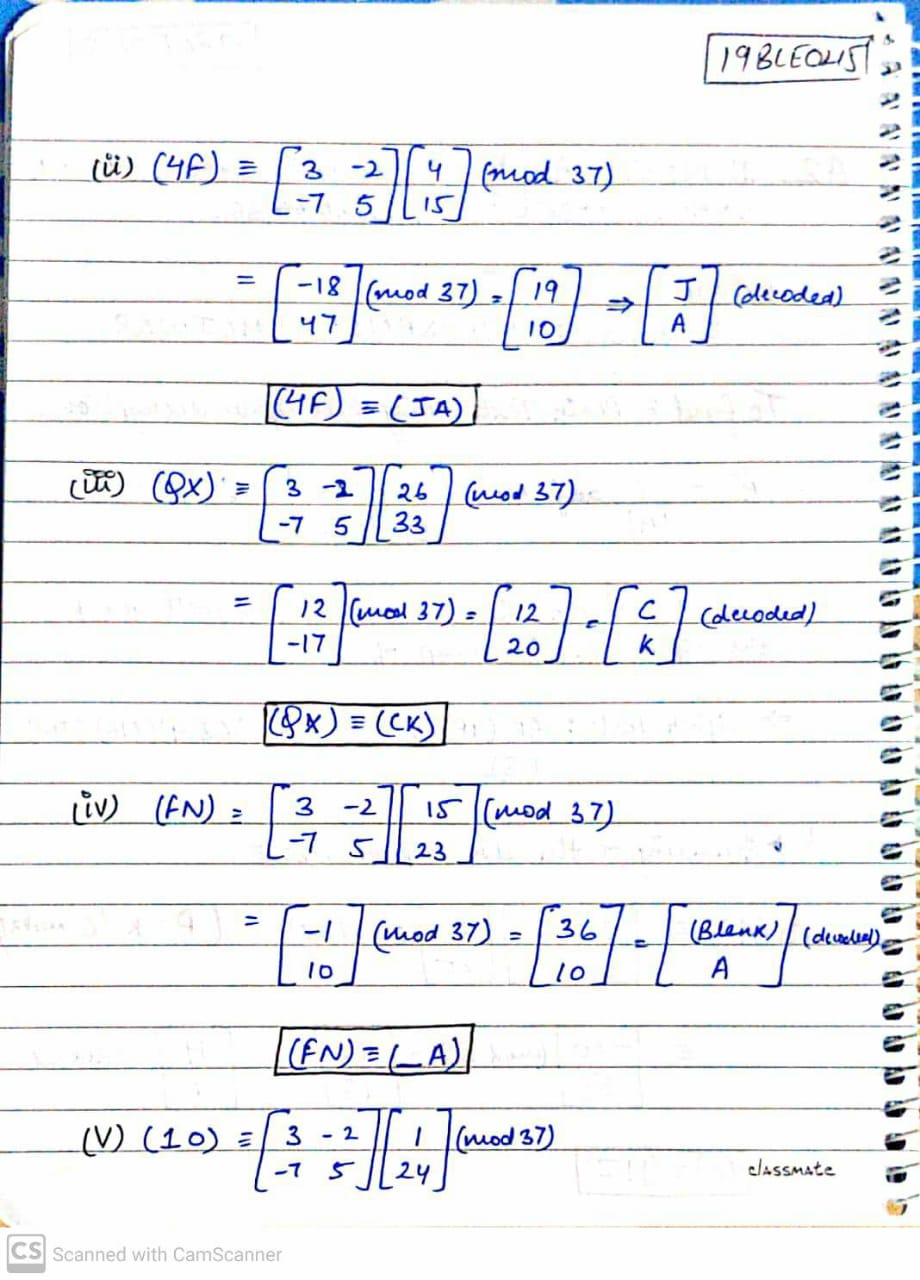 19BLE0215
(ii) (4F) ≡ [3 -2; -7 5] [4; 15] (mod 37)
= [-18; 47] (mod 37) = [19; 10] ⇒ [J; A] (decoded)
(4F) ≡ (JA)
(iii) (QX) ≡ [3 -2; -7 5] [26; 33] (mod 37)
= [12; -17] (mod 37) = [12; 20] = [C; K] (decoded)
(QX) ≡ (CK)
(iv) (FN) ≡ [3 -2; -7 5] [15; 23] (mod 37)
= [-1; 10] (mod 37) = [36; 10] = [(Blank); A] (decoded)
(FN) ≡ (_A)
(V) (10) ≡ [3 -2; -7 5] [1; 24] (mod 37)
classmate
CS Scanned with CamScanner